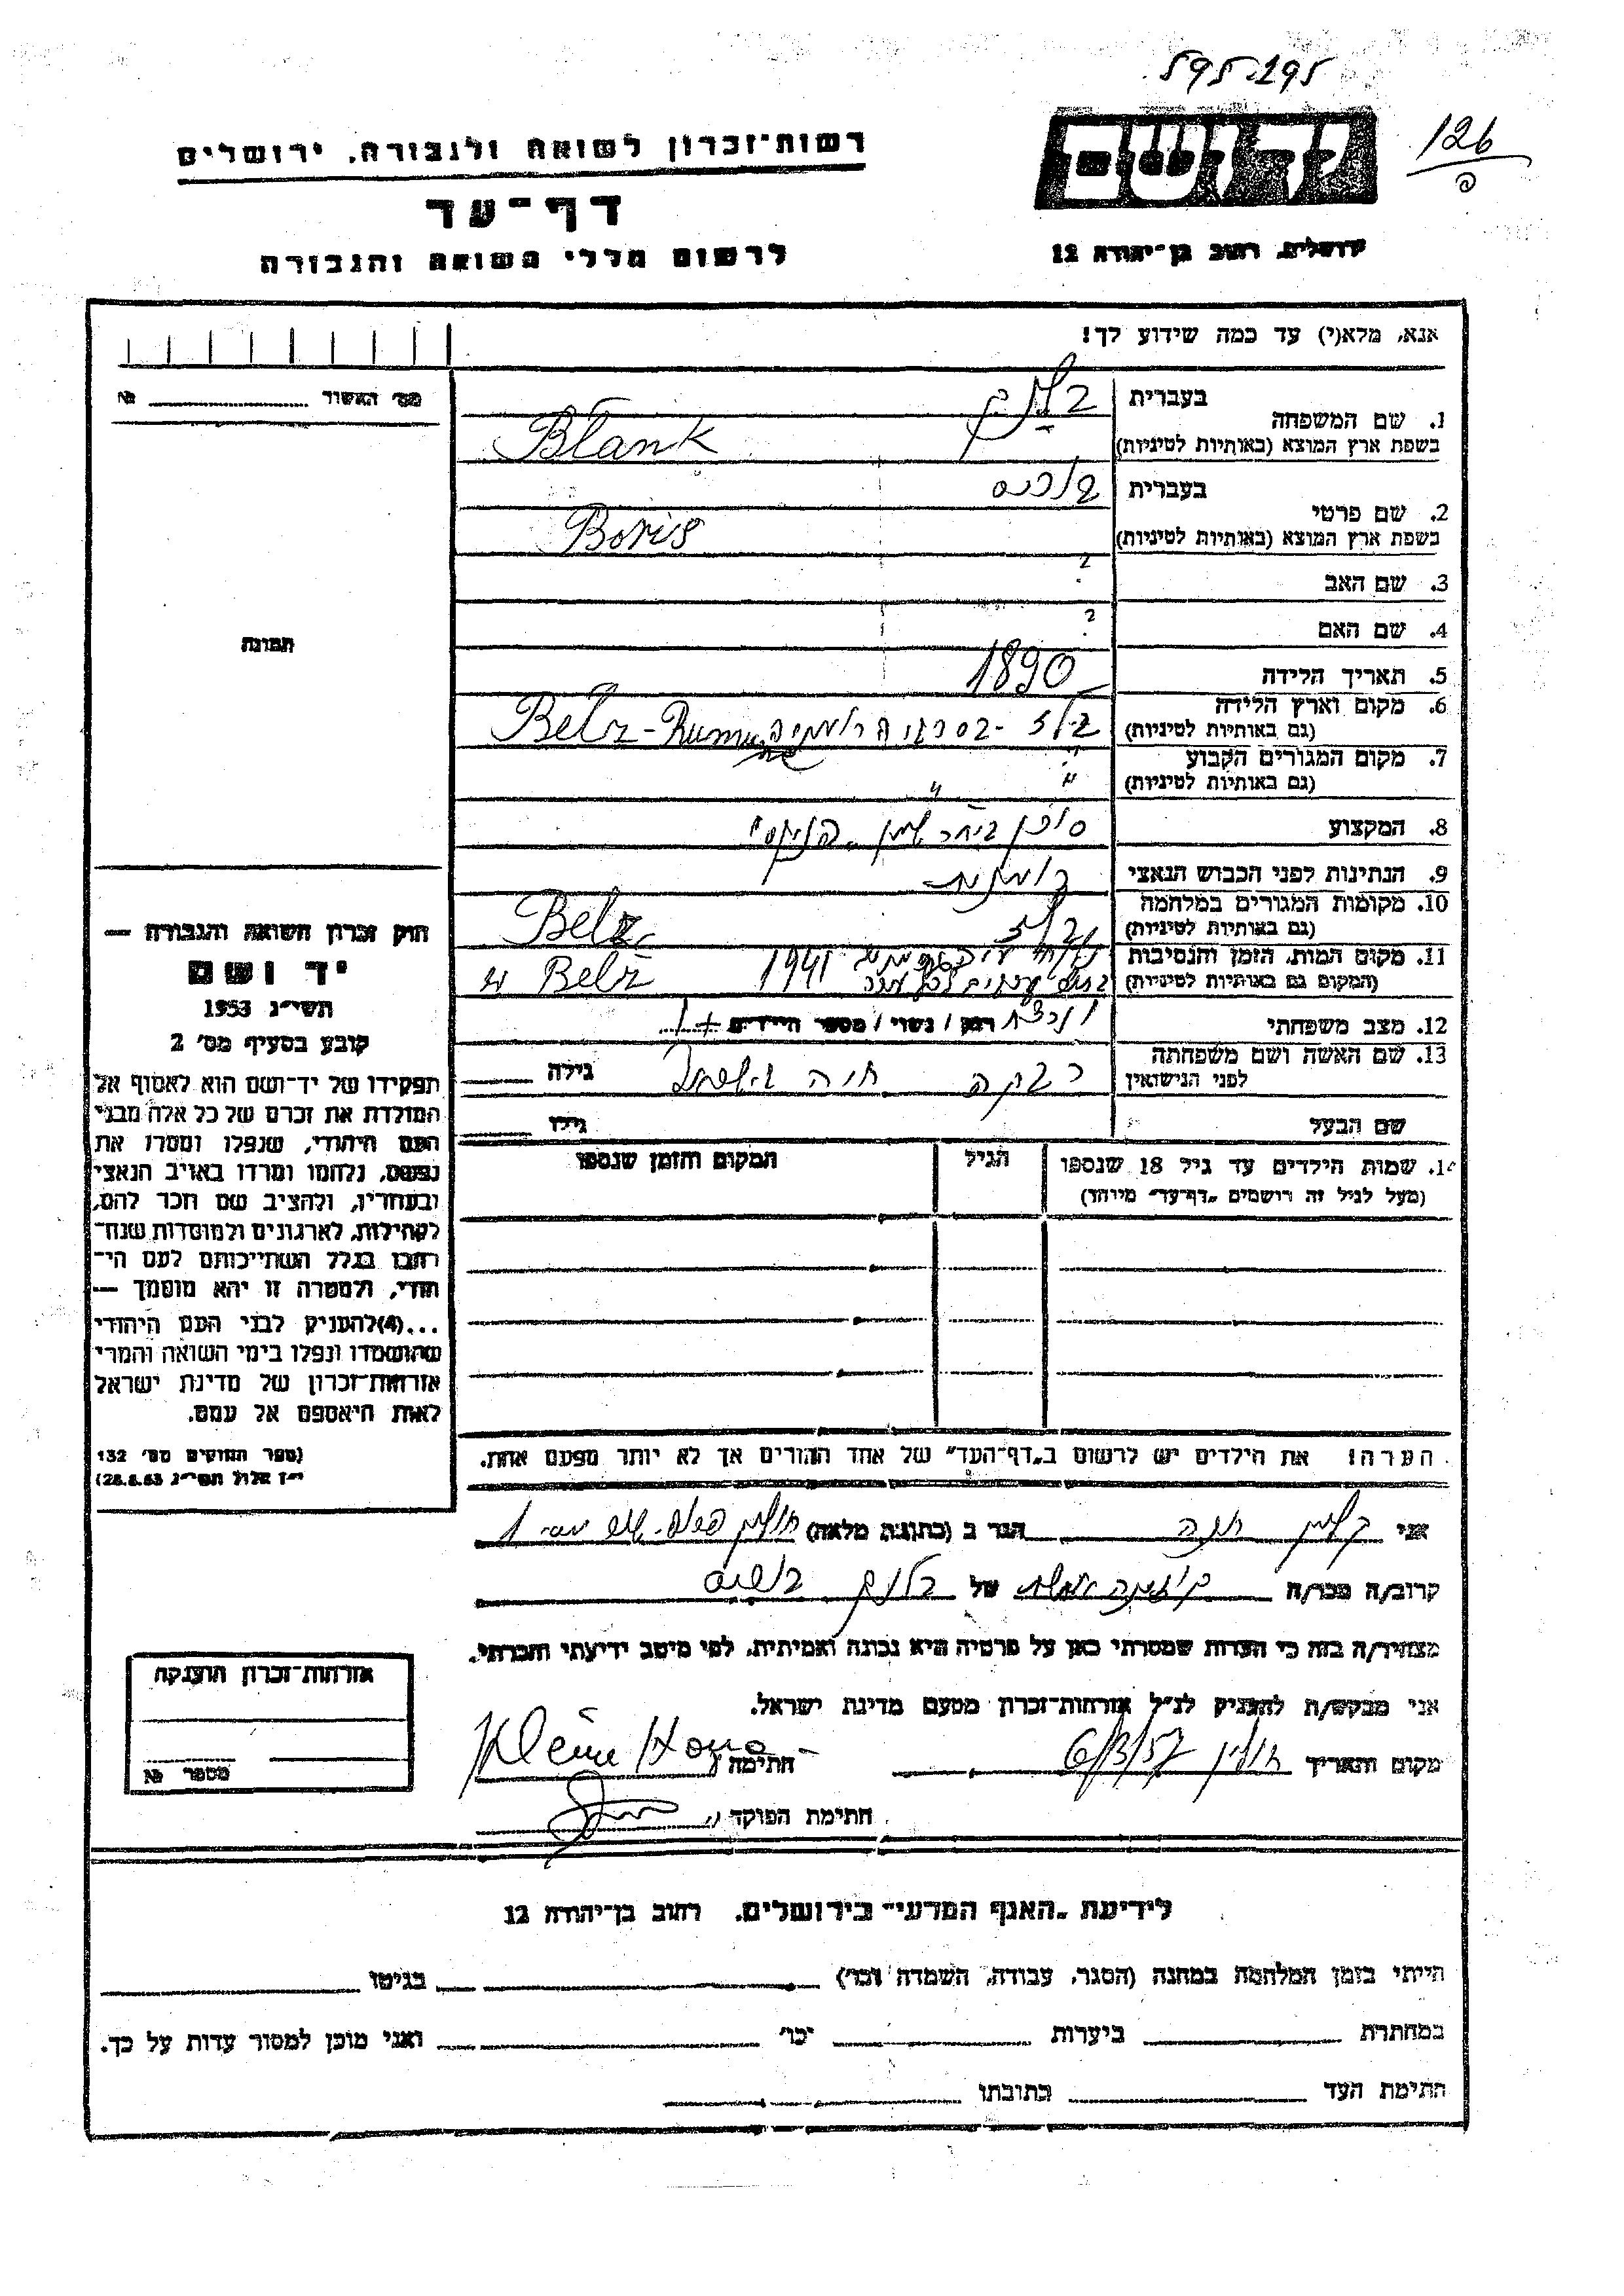 126
רשות־זכרון לשואה ולגבורה, ירושלים
דף־עד
לרשום חללי השואה והגבורה
ירושלים, רחוב בן־יהודה 12
אנא, מלא(י) עד כמה שידוע לך!
מס' האשור
1. שם המשפחה
בעברית
בשפת ארץ המוצא (באותיות לטיניות) Blank
2. שם פרטי
בעברית
בשפת ארץ המוצא (באותיות לטיניות) Boris
3. שם האב ?
4. שם האם ?
5. תאריך הלידה 1890
6. מקום וארץ הלידה
(גם באותיות לטיניות) בלז - בסרביה רומניה Belz -
7. מקום המגורים הקבוע
(גם באותיות לטיניות) " "
8. המקצוע
9. הנתינות לפני הכבוש הנאצי רומנית
10. מקומות המגורים במלחמה
(גם באותיות לטיניות) בלז Belz
11. מקום המות, הזמן והנסיבות
(המקום גם באותיות לטיניות) 1941 Belz
12. מצב משפחתי רווק / נשוי / מספר הילדים + 1
13. שם האשה ושם משפחתה
לפני הנישואין רבקה חיה גילה
שם הבעל גילו
שמות הילדים עד גיל 18 שנספו
(מעל לגיל זה רושמים "דף־עד" מיוחד)
הגיל
המקום והזמן שנספו
הערה! את הילדים יש לרשום ב"דף־העד" של אחד ההורים אך לא יותר מפעם אחת.
תמונה
חוק זכרון השואה והגבורה —
יד ושם
תשי"ג 1953
קובע בסעיף מס' 2
תפקידו של יד־ושם הוא לאסוף אל
המולדת את זכרם של כל אלה מבני
העם היהודי, שנפלו ומסרו את
נפשם, נלחמו ומרדו באויב הנאצי
ובעוזריו, ולהציב שם וזכר להם,
לקהילות, לארגונים ולמוסדות שנח־
רבו בגלל השתייכותם לעם הי־
הודי, ולמטרה זו יהא מוסמך —
...(4) להעניק לבני העם היהודי
שהושמדו ונפלו בימי השואה והמרי
אזרחות־זכרון של מדינת ישראל
לאות היאספם אל עמם.
(ספר החוקים מס' 132
י"ז אלול תשי"ג 28.8.53)
אני קליין חנה הגר ב (כתובת מלאה) חולון
קרוב/ה מכר/ה של בלנק בוריס
מצהיר/ה בזה כי העדות שמסרתי כאן על פרטיה היא נכונה ואמיתית, לפי מיטב ידיעתי והכרתי.
אני מבקש/ת להעניק לנ"ל אזרחות־זכרון מטעם מדינת ישראל.
מקום ותאריך חולון 6/3/57 חתימה
חתימת הפוקד
אזרחות־זכרון הוענקה
מספר
לידיעת "האגף המדעי" בירושלים, רחוב בן־יהודה 12
הייתי בזמן המלחמה במחנה (הסגר, עבודה, השמדה וכו') בגיטו
במחתרת ביערות וכו' ואני מוכן למסור עדות על כך.
חתימת העד כתובתו